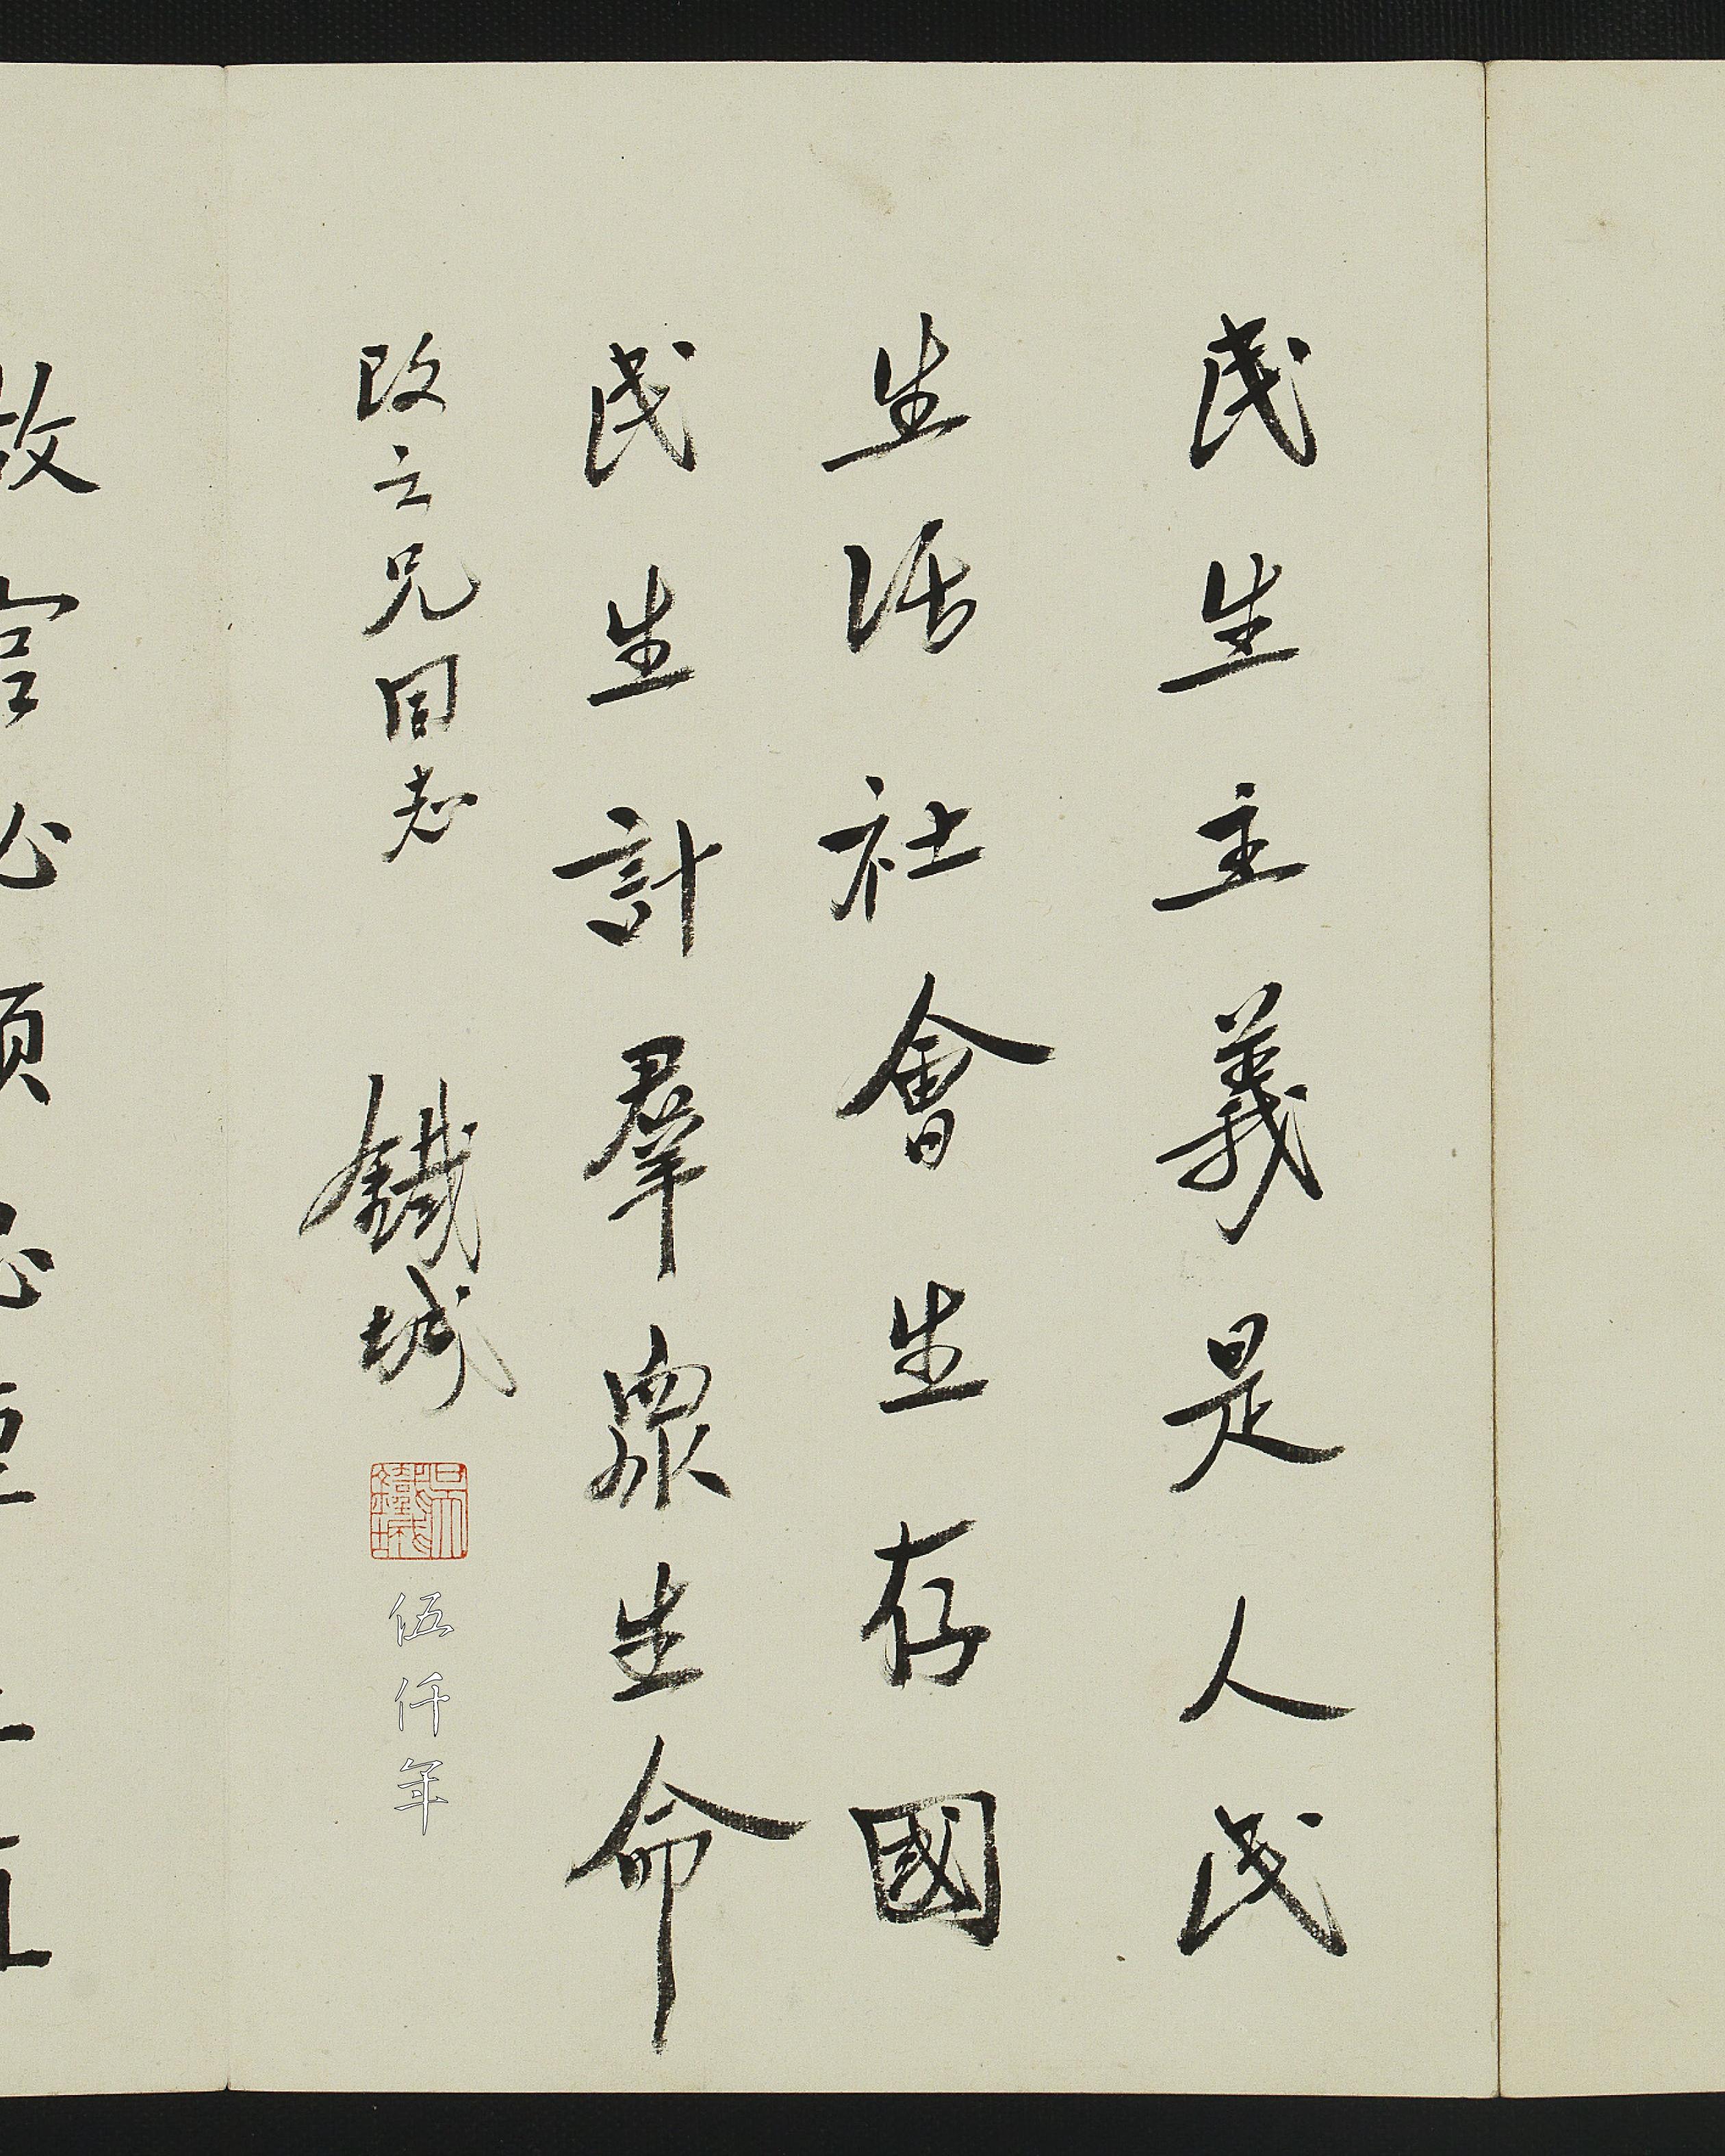 民生主義是人民
生活社會生存國
民生計羣眾生命
改之兄同志
鐵城
吳鐵城
伍仟年
故宮必須